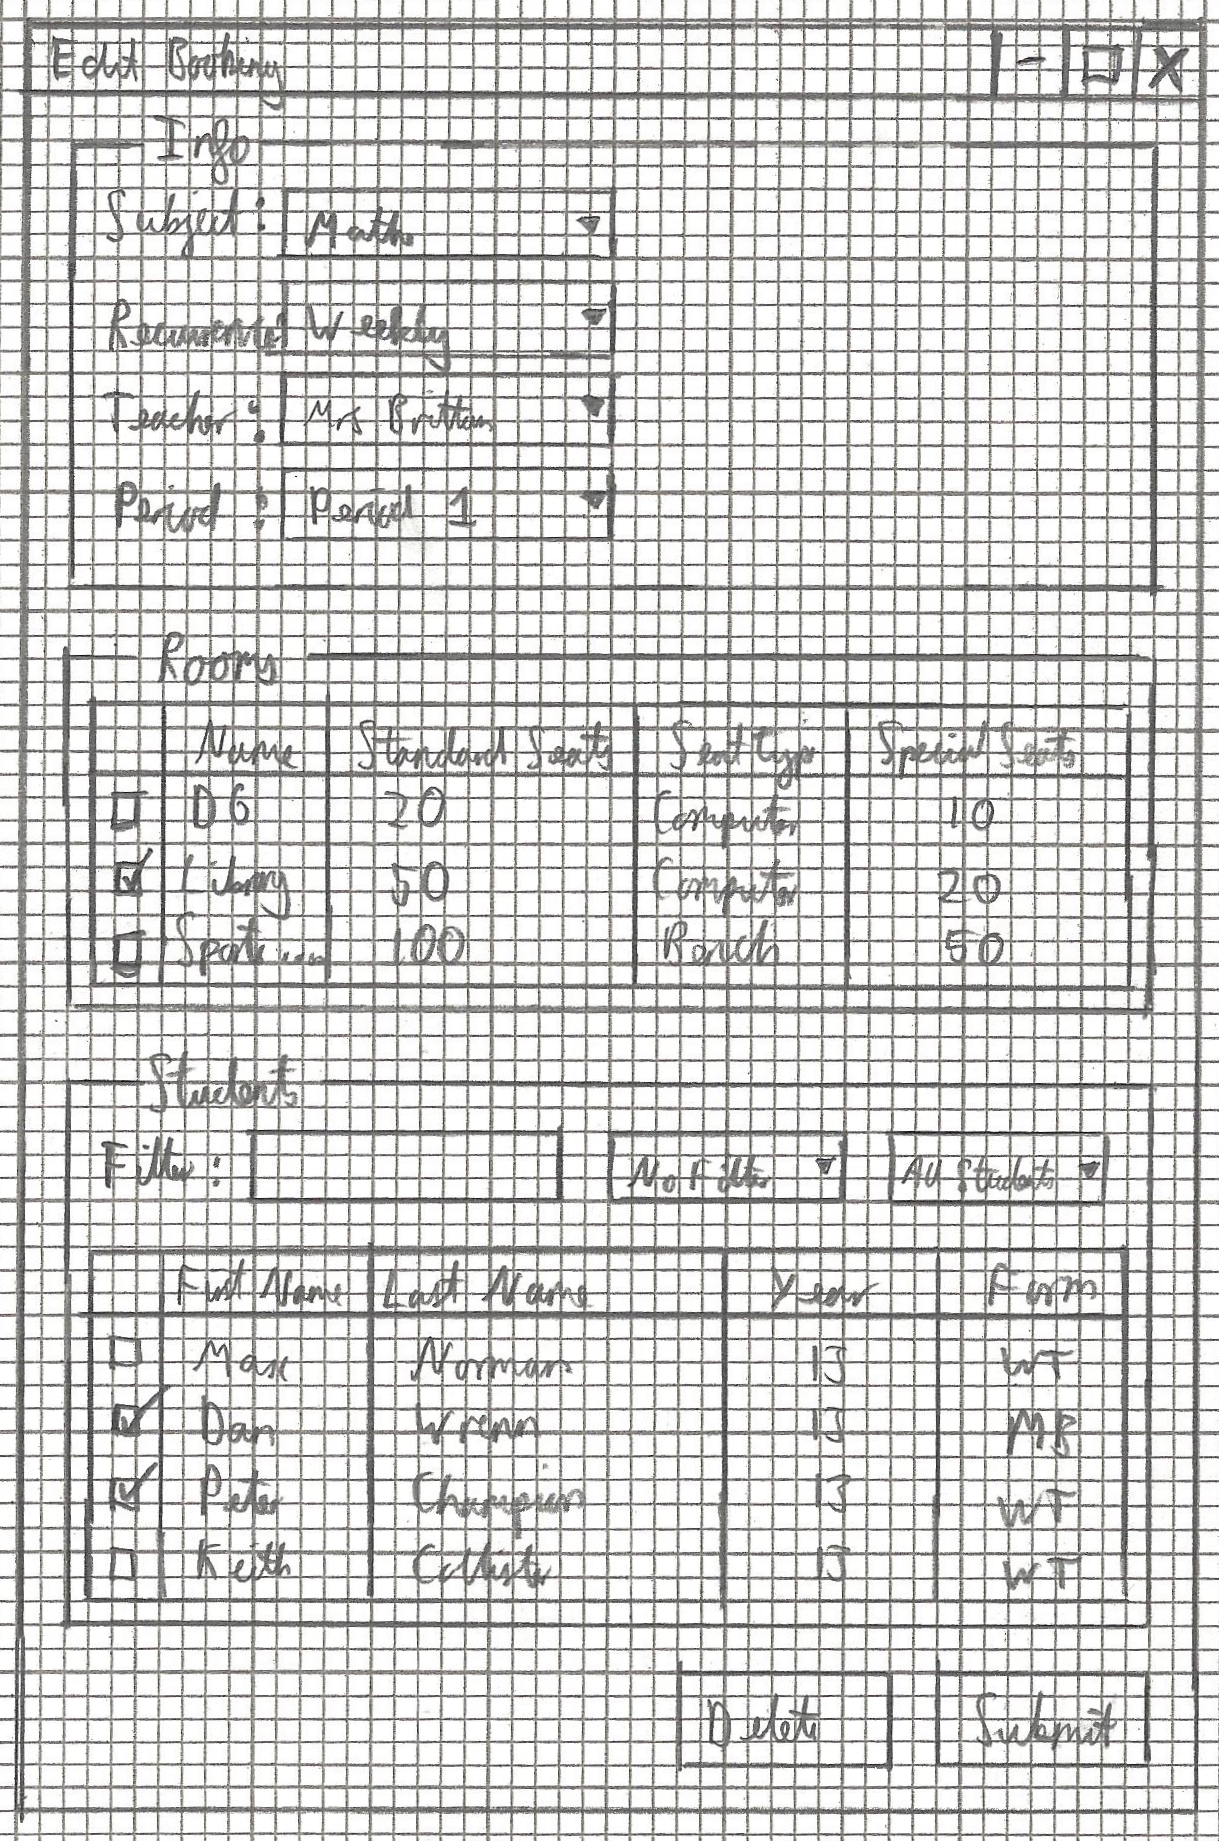 Edit Booking - □ X
Info
Subject: Maths
Recurrence: Weekly
Teacher: Mrs Brittan
Period: Period 1
Rooms
Name Standard Seats Seat Type Special Seats
D6 20 Computer 10
Library 50 Computer 20
Sports .... 100 Bench 50
Students
Filter: No Filter All Students
First Name Last Name Year Form
Max Norman 13 WT
Dan Wrenn 13 MB
Peter Champion 13 WT
Keith Collister 13 WT
Delete Submit